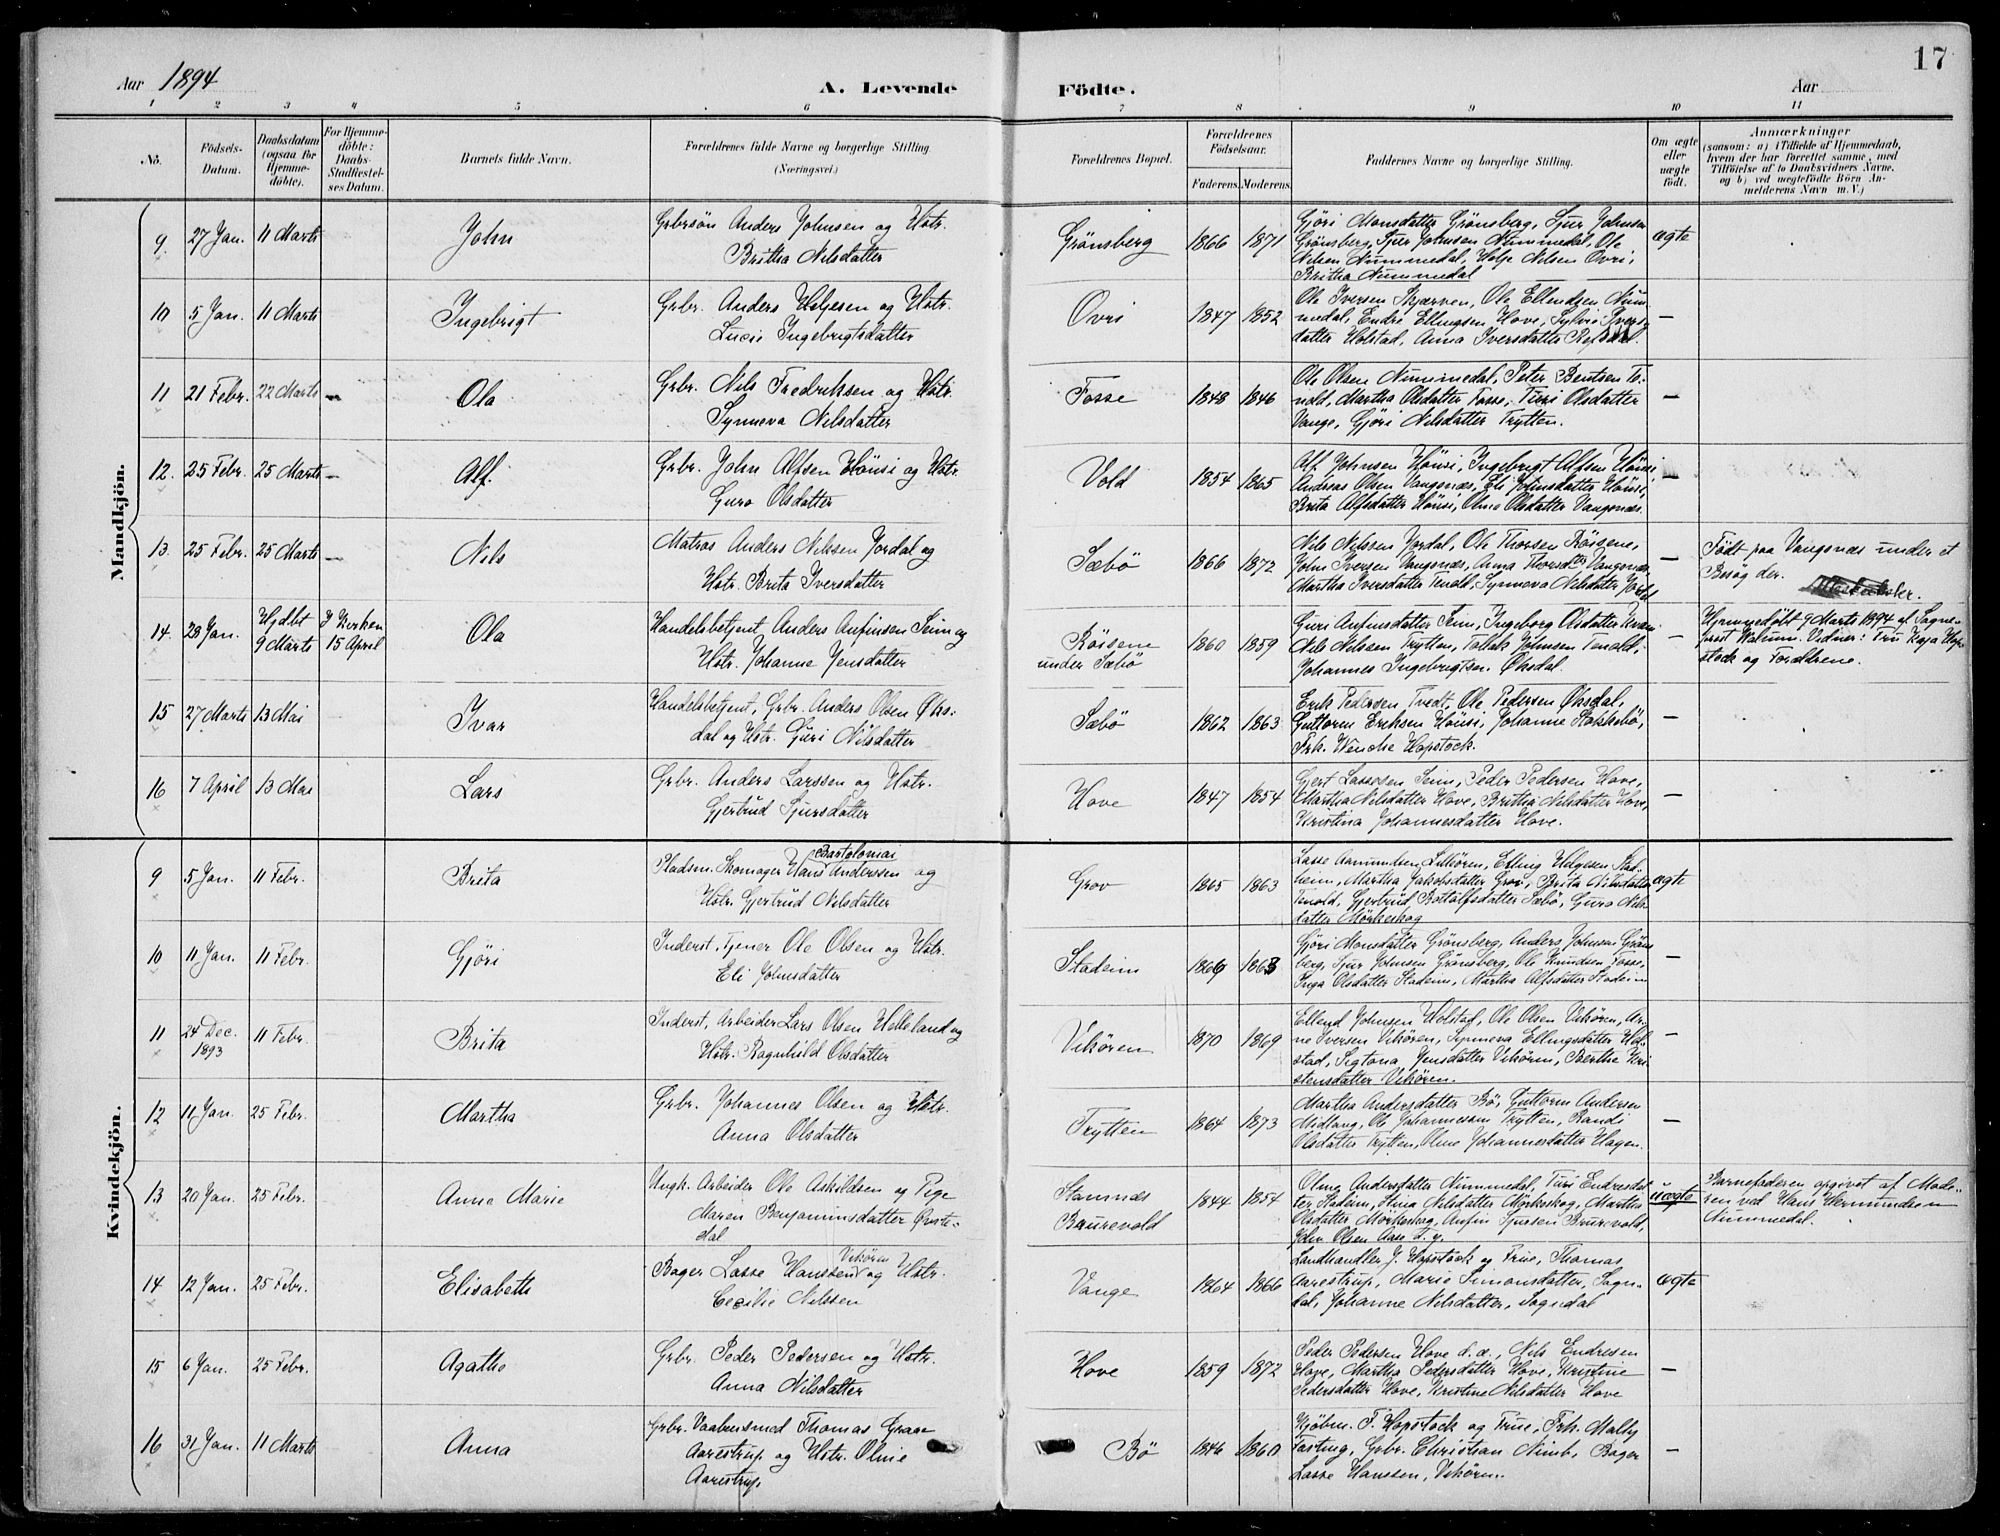 17
Aar 1894 A. Levende Födte. Aar
1 2 3 4 5 6 7 8 9 10 11
No. Födsels-Datum. Daabsdatum (ogsaa for Hjemme-döbte). For Hjemme-döbte: Daabs-Stadfæstel-ses Datum. Barnets fulde Navn. Forældrenes fulde Navne og borgerlige Stilling. (Næringsvei.) Forældrenes Bopæl. Forældrenes Födselsaar. Faderens. Moderens. Faddernes Navne og borgerlige Stilling. Om ægte eller uægte födt. Anmærkninger
(saasom: a) i Tilfælde af Hjemmedaab,
hvem der har forrettet samme, med
Tilföielse af to Daabsvidners Navne,
og b) ved uægtefödte Börn An-
melderens Navn m. V.)
Mandkjön.
9. 27 Jan. 11 Marts John Grbrsön Anders Johnsen og Hstr.
Britha Nilsdatter
Grönsberg 1866 1871 Gjöri Monsdatter Grönsberg, Sjur Johnsen
Grönsberg, Sjur Johnsen Nummedal, Ole
Nilsen Nummedal, Helje Nilsen Ovri,
Britha Nummedal
ægte
10 5 Jan. 11 Marts Ingebrigt Grbr. Anders Helgesen og Hstr.
Lucie Ingebrigtsdatter
Ovri 1847 1852 Ole Iversen Skjærven, Ole Ellendsen Num-
medal, Endre Ellingsen Hove, Sylvi Ivers-
datter Holstad, Anna Iversdatter Refsdal.
—
11 21 Febr. 22 Marts — Ola Grbr. Nils Fredriksen og Hstr.
Synneva Nilsdatter
Fosse 1848 1846 Ole Olsen Nummedal, Peter Bentsen Te-
nold, Martha Olsdatter Fosse, Turi Olsdatter
Vange, Gjöri Nilsdatter Trytten.
—
12. 25 Febr. 25 Marts — Alf. Grbr. John Alfsen Höusi og Hstr.
Guro Olsdatter
Vold 1854 1865 Alf Johnsen Höusi, Ingebrigt Alfsen Höusi,
Andreas Olsen Vangsnæs, Eli Johnsdatter Höusi,
Brita Alfsdatter Höusi, Olina Olsdatter Vangsnæs.
—
13. 25 Febr. 25 Marts — Nils Matros Anders Nilssen Jordal og
Hstr. Brita Iversdatter
Sæbö 1866 1872 Nils Nilssen Jordal, Ole Thorsen Röisene,
John Iversen Vangsnæs, Anna Thorsdtr Vangsnæs,
Martha Iversdatter Tenold, Synneva Nilsdatter Jordal
—
Födt paa Vangsnæs under et
Besög der.
14. 28 Jan. Hjdbt 9 Marts I Kirken 15 April Ola Handelsbetjent Anders Anfinsen Seim og
Hstr. Johanne Jensdatter
Röisene
under Sæbö
1860 1859 Guri Anfinsdatter Seim, Ingeborg Olsdatter
Nils Nilssen Trytten, Tollak Johnsen Tenold,
Johannes Ingebrigtsen Öksdal.
—
Hjemmedöbt 9 Marts 1894 af Sogne-
prest Walnum. Vidner: Fru Kaja Hop-
stock og Forældrene.
15 27 Marts 13 Mai Ivar Handelsbetjent, Grbr. Anders Olsen Öks-
dal og Hstr. Guri Nilsdatter
Sæbö 1862 1863 Erik Pedersen Tvedt, Ole Pedersen Öksdal,
Guttorm Eriksen Höusi, Johanne
Frk. Wenche Hopstock.
—
16 7 April 13 Mai Lars Grbr. Anders Larssen og Hstr.
Gjertrud Sjursdatter
Hove 1847 1854 Gjert Lassesen Seim, Peder Pedersen Hove,
Martha Nilsdatter Hove, Britha Nilsdatter Hove,
Kristina Johannesdatter Hove.
—
Kvindekjön.
9 5 Jan. 11 Febr. Brita Pladsm. Skomager Hans Bartolomai Anderssen og
Hstr. Gjertrud Nilsdatter
Grov 1865 1863 Lasse Aamundsen Lillören, Elling Helgesen Sta-
heim, Martha Jakobsdatter Grov, Brita Nilsdatter
Tenold, Gjertrud Botolfsdatter Sæbö, Guro Nils-
datter Mörkeskog
ægte
10 11 Jan. 11 Febr. Gjöri Inderst, Tjener Ole Olsen og Hstr.
Eli Johnsdatter
Stadeim 1866 1863 Gjöri Monsdatter Grönsberg, Anders Johnsen Gröns-
berg, Sjur Johnsen Grönsberg, Ole Knudsen Fosse,
Inga Olsdatter Stadeim, Martha Alfsdatter Stadeim
—
11 24 Dec. 1893 11 Febr. Brita Inderst, Arbeider Lars Olsen Helleland og
Hstr. Ragnhild Olsdatter
Vikören 1870 1869 Ellend Johnsen Holstad, Ole Olsen Vikören, Ar-
ne Iversen Vikören, Synneva Ellingsdatter Hol-
stad, Sigtona Jensdatter Vikören, Berthe Kri-
stensdatter Vikören.
—
12 11 Jan. 25 Febr. Martha Grbr. Johannes Olsen og Hstr.
Anna Olsdatter
Trytten 1864 1873 Martha Andersdatter Bö, Guttorm Andersen
Midlang, Ole Johannessen Trytten, Randi
Olsdatter Trytten, Oline Johannesdatter Hagen.
—
13 20 Jan. 25 Febr. Anna Marie Ungk. Arbeider Ole Askildsen og Pige
Maren Benjaminsdatter Övste-
dal
Stamnæs
Baurevold
1844 1854 Olina Andersdatter Nummedal, Turi Endresdat-
ter Stadeim, Stina Nilsdatter Mörkeskog, Martha
Olsdatter Mörkeskog, Anfin Sjursen Baurevold,
John Olsen Aase d. y.
uægte
Barnefaderen opgivet af Mode-
ren ved Hans Hermundsen
Nummedal.
14 12 Jan. 25 Febr. Elisabeth Bager Lasse Hanssen Vikören og Hstr.
Cecilie Nilssen
Vange 1864 1866 Landhandler J. Hopstock og Frue, Thomas
Aarestrup, Marie Simonsdatter, Sogn-
dal, Johanne Nilsdatter, Sogndal
ægte
15 6 Jan. 25 Febr. Agathe Grbr. Peder Pedersen og Hstr.
Anna Nilsdatter
Hove 1859 1872 Peder Pedersen Hove d. æ., Nils Endresen
Hove, Martha Pedersdatter Hove, Kristine
Pedersdatter Hove, Kristine Nilsdatter Hove
—
16 31 Jan. 11 Marts Anna Grbr. Vaabensmed Thomas Graae
Aarestrup og Hstr. Oline
Aarestrup.
Bö 1846 1860 Kjöbm. F. Hopstock og Frue, Frk. Malby
Fasting, Grbr. Christian Nimb, Bager
Lasse Hanssen, Vikören.
—